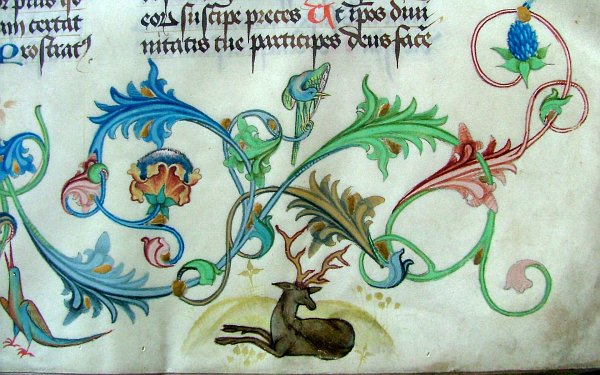 certat
Prostratꝰ
eoꝝ suscipe preces Ac ip̄os diui
nitatis tue participes deus face